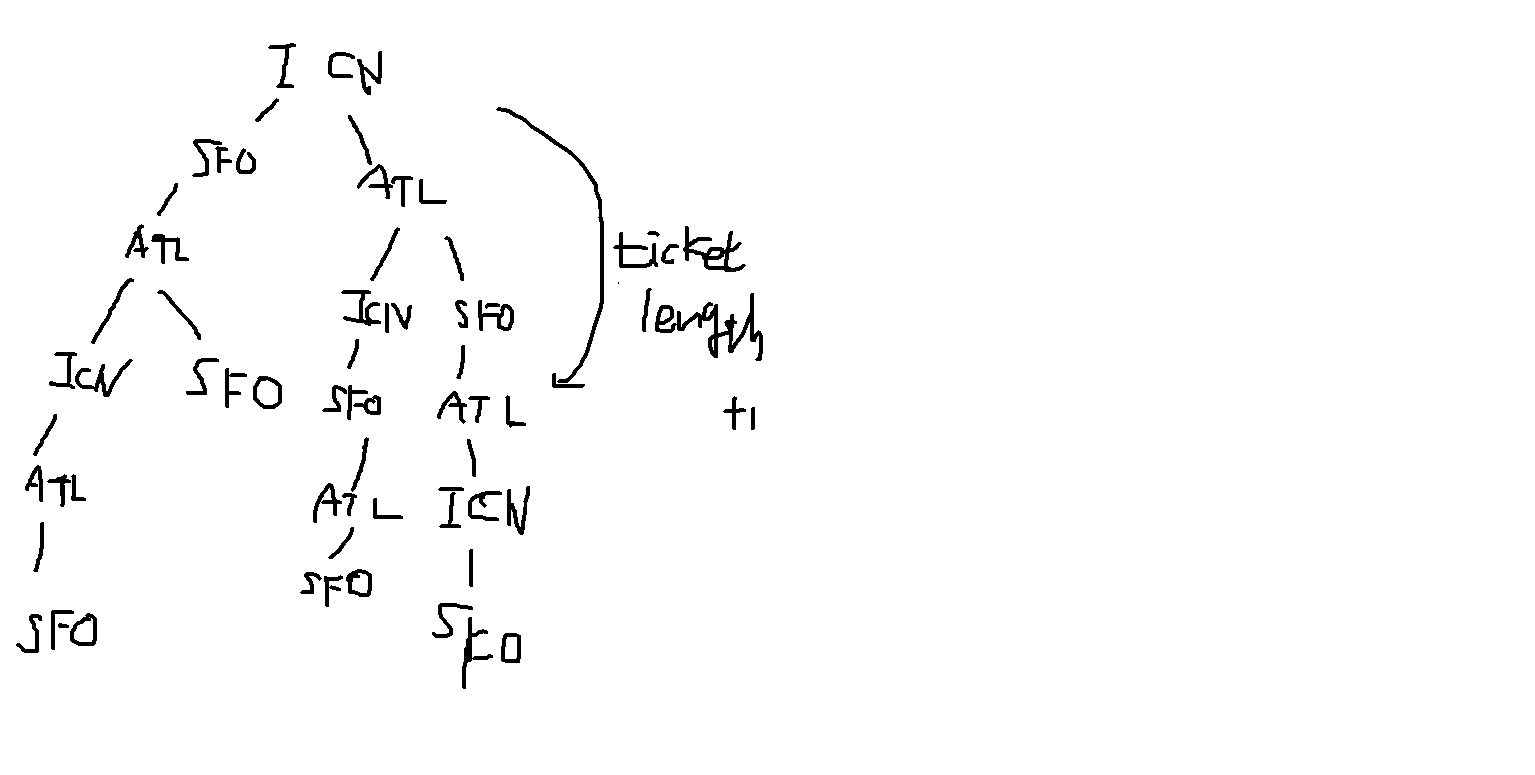 ICN
SFO
ATL
ATL
ICN
SFO
ICN
SFO
ATL
SFO
SFO
ATL
ICN
SFO
ATL
SFO
ticket
length
+1